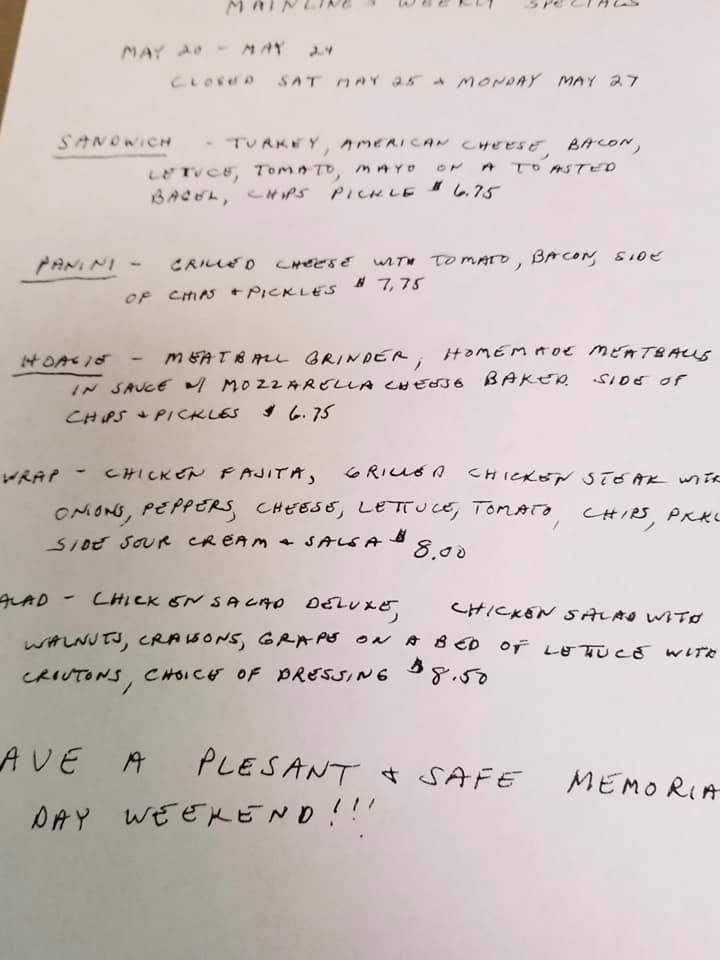 MAINLINE'S WEEKLY SPECIALS
MAY 20 - MAY 24
CLOSED SAT MAY 25 & MONDAY MAY 27
SANDWICH - TURKEY, AMERICAN CHEESE, BACON,
LETUCE, TOMATO, MAYO ON A TOASTED
BAGEL, CHIPS PICKLE $ 6.75
PANINI - GRILLED CHEESE WITH TOMATO, BACON, SIDE
OF CHIPS + PICKLES $ 7.75
HOAGIE - MEATBALL GRINDER, HOMEMADE MEATBALLS
IN SAUCE W/ MOZZARELLA CHEESE BAKED. SIDE OF
CHIPS + PICKLES $ 6.75
WRAP - CHICKEN FAJITA, GRILLED CHICKEN STEAK WITH
ONIONS, PEPPERS, CHEESE, LETTUCE, TOMATO, CHIPS, PKKL
SIDE SOUR CREAM & SALSA $ 8.00
ALAD - CHICKEN SALAD DELUXE, CHICKEN SALAD WITH
WALNUTS, CRAISONS, GRAPE ON A BED OF LETTUCE WITH
CROUTONS, CHOICE OF DRESSING $ 8.50
AVE A PLESANT & SAFE MEMORIA
DAY WEEKEND!!!